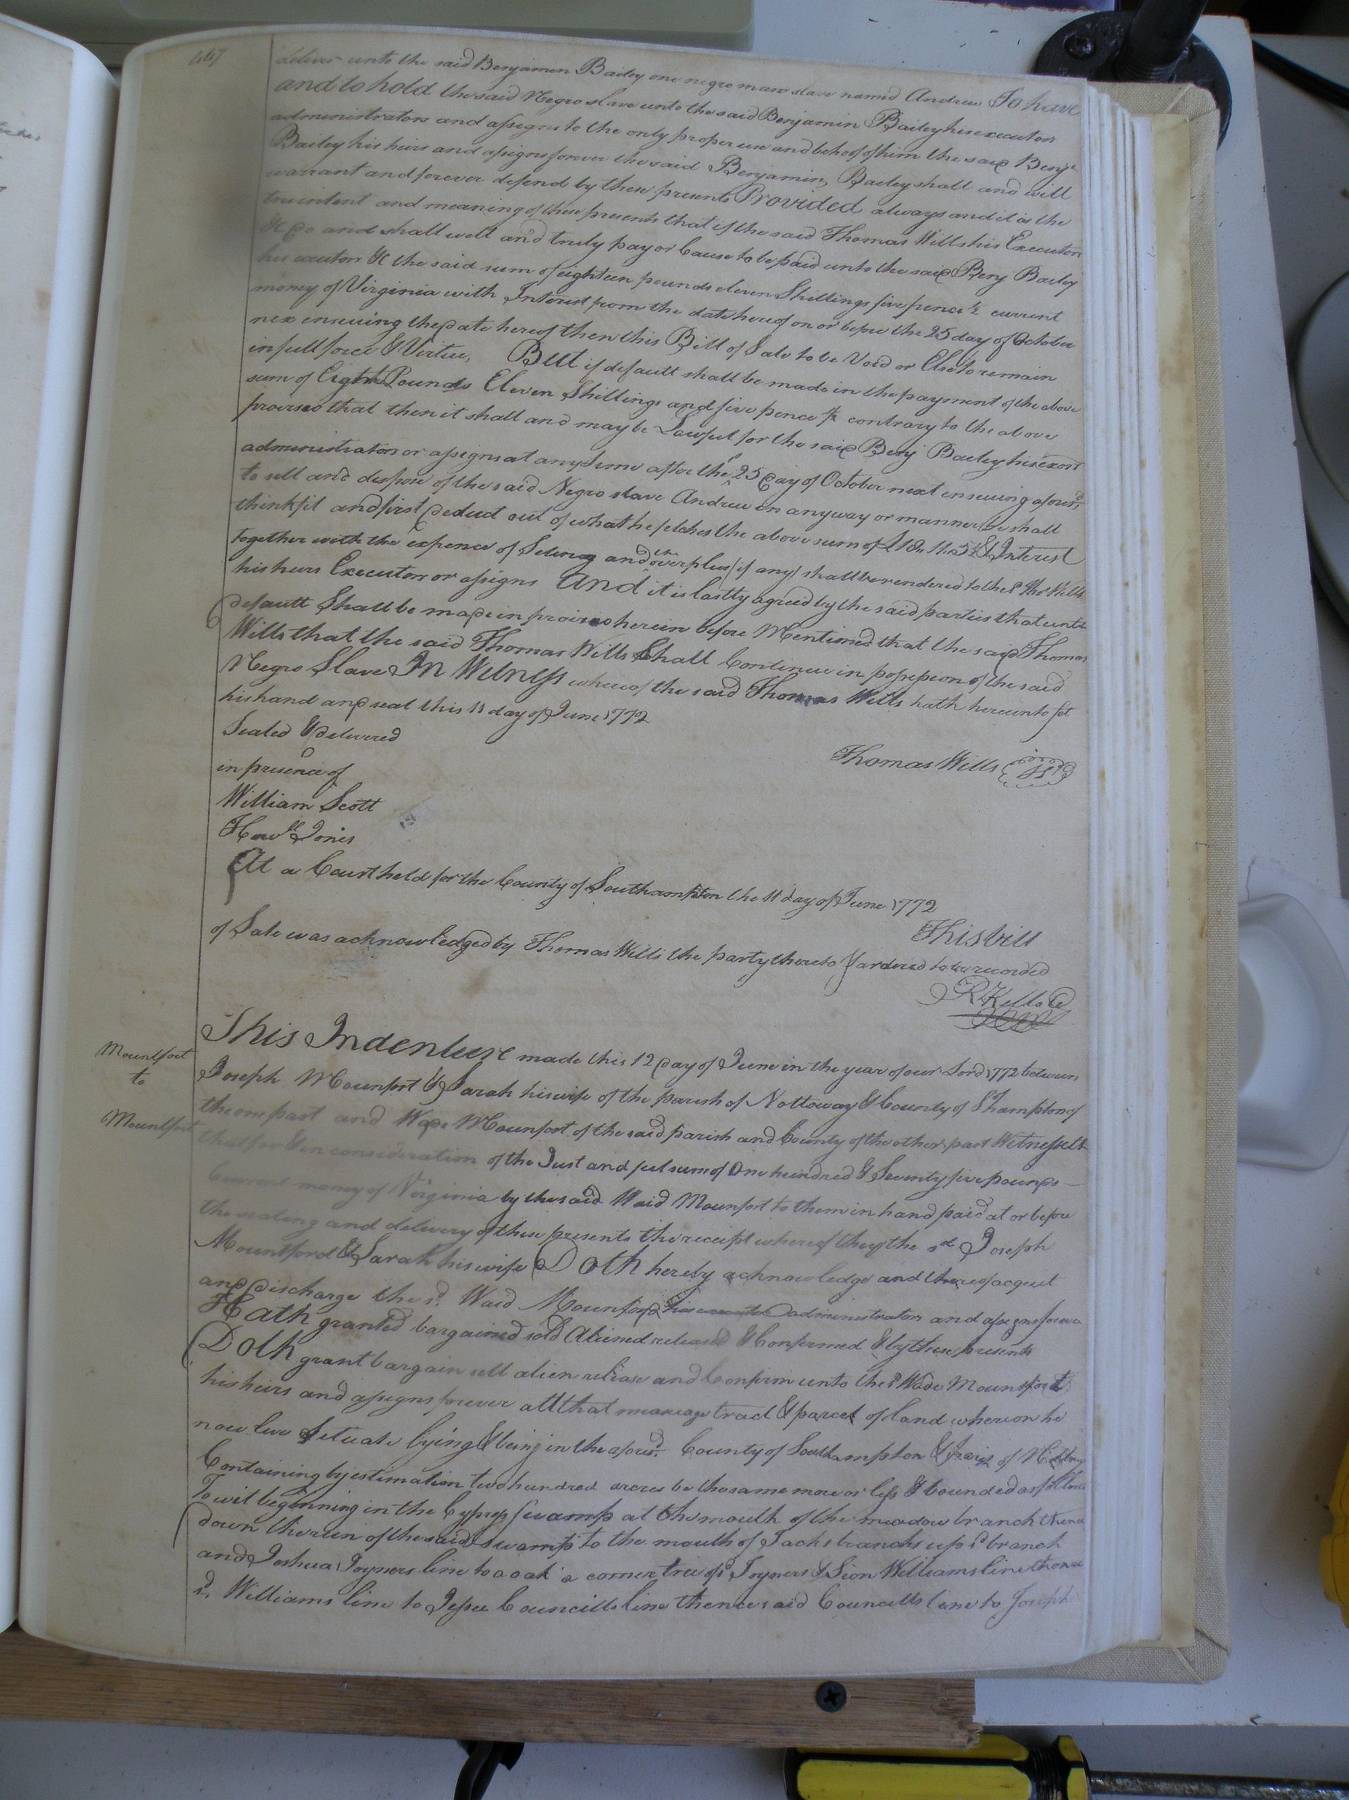 447
deliver unto the said Benjamin Bailey one negro man slave named Andrew To have
and to hold the said Negro slave unto the said Benjamin Bailey his executors
administrators and assigns to the only proper use and behoof of him the said Benja
Bailey his heirs and assigns forever the said Benjamin Bailey shall and will
warrant and forever defend by these presents Provided always and it is the
true intent and meaning of these presents that if the said Thomas Wills his Executors
&c Do and shall well and truly pay or Cause to be paid unto the said Benj Bailey
his executors &c the said sum of eighteen pounds eleven Shillings five pence ½ current
money of Virginia with Interest from the date hereof on or before the 25 day of October
nex ensuing the date hereof then this Bill of Sale to be Void or Else to remain
in full force & Virtue. But if default shall be made in the payment of the above
sum of Eight Pounds Eleven Shillings and five pence ½ contrary to the above
proviso that then it shall and may be Lawful for the said Benj Bailey his exors
administrators or assigns at any time after the 25 day of October next ensuing aforesd
to sell and dispose of the said Negro slave Andrew in any way or manner he shall
think fit and first deduct out of what he fetches the above sum of £18..11..5½ & Interest
together with the expence of Selling and the overplus (if any) shall be rendered to the sd Thos Wills
his heirs Executors or assigns And it is lastly agreed by the said parties that until
default Shall be made in proviso herein before Mentioned that the said Thomas
Wills that the said Thomas Wills Shall Continue in possession of the said
Negro Slave In Witness whereof the said Thomas Wills hath hereunto set
his hand and seal this 11 day of June 1772
Sealed & delivered
Thomas Wills
in presence of
William Scott
Howll Jones
At a Court held for the County of Southampton the 11 day of June 1772
This bill
of Sale was acknowledged by Thomas Wills the party thereto & ordered to be recorded
R Kello
This Indenture made this 12 day of June in the year of our Lord 1772 between
Mountfort
to
Mountfort
Joseph Mounfort & Sarah his wife of the parish of Nottoway & County of Shampton of
the one part and Wade Mounfort of the said parish and County of the other part Witnesseth
that for & in consideration of the Just and full sum of One hundred & Seventy five pounds
Current money of Virginia by the said Waid Mounfort to them in hand paid at or before
the sealing and delivery of these presents the receipt whereof they the sd Joseph
Mountford & Sarah his wife Doth hereby acknowledge and thereof acquit
and discharge the sd. Waid Mounford his executors administrators and assigns forever
Hath granted bargained sold Aliened released & Confirmed & by these presents
Doth grant bargain sell alien release and Confirm unto the sd Wade Mountfort
his heirs and assigns forever all that tract & parcel of land whereon he
now live Situate lying & being in the aforesd. County of Southampton & parish of Nottoway
Containing by estimation two hundred acres be the same more or less & bounded as follows
To wit beginning in the Cypress swamp at the mouth of the meadow branch thence
down the run of the said swamp to the mouth of Jacks branch up sd branch
and Joshua Joyners line to a oak a corner tree of sd Joyners & Sion Williams line thence
sd. Williams line to Jesse Councills line thence said Councills line to Joseph